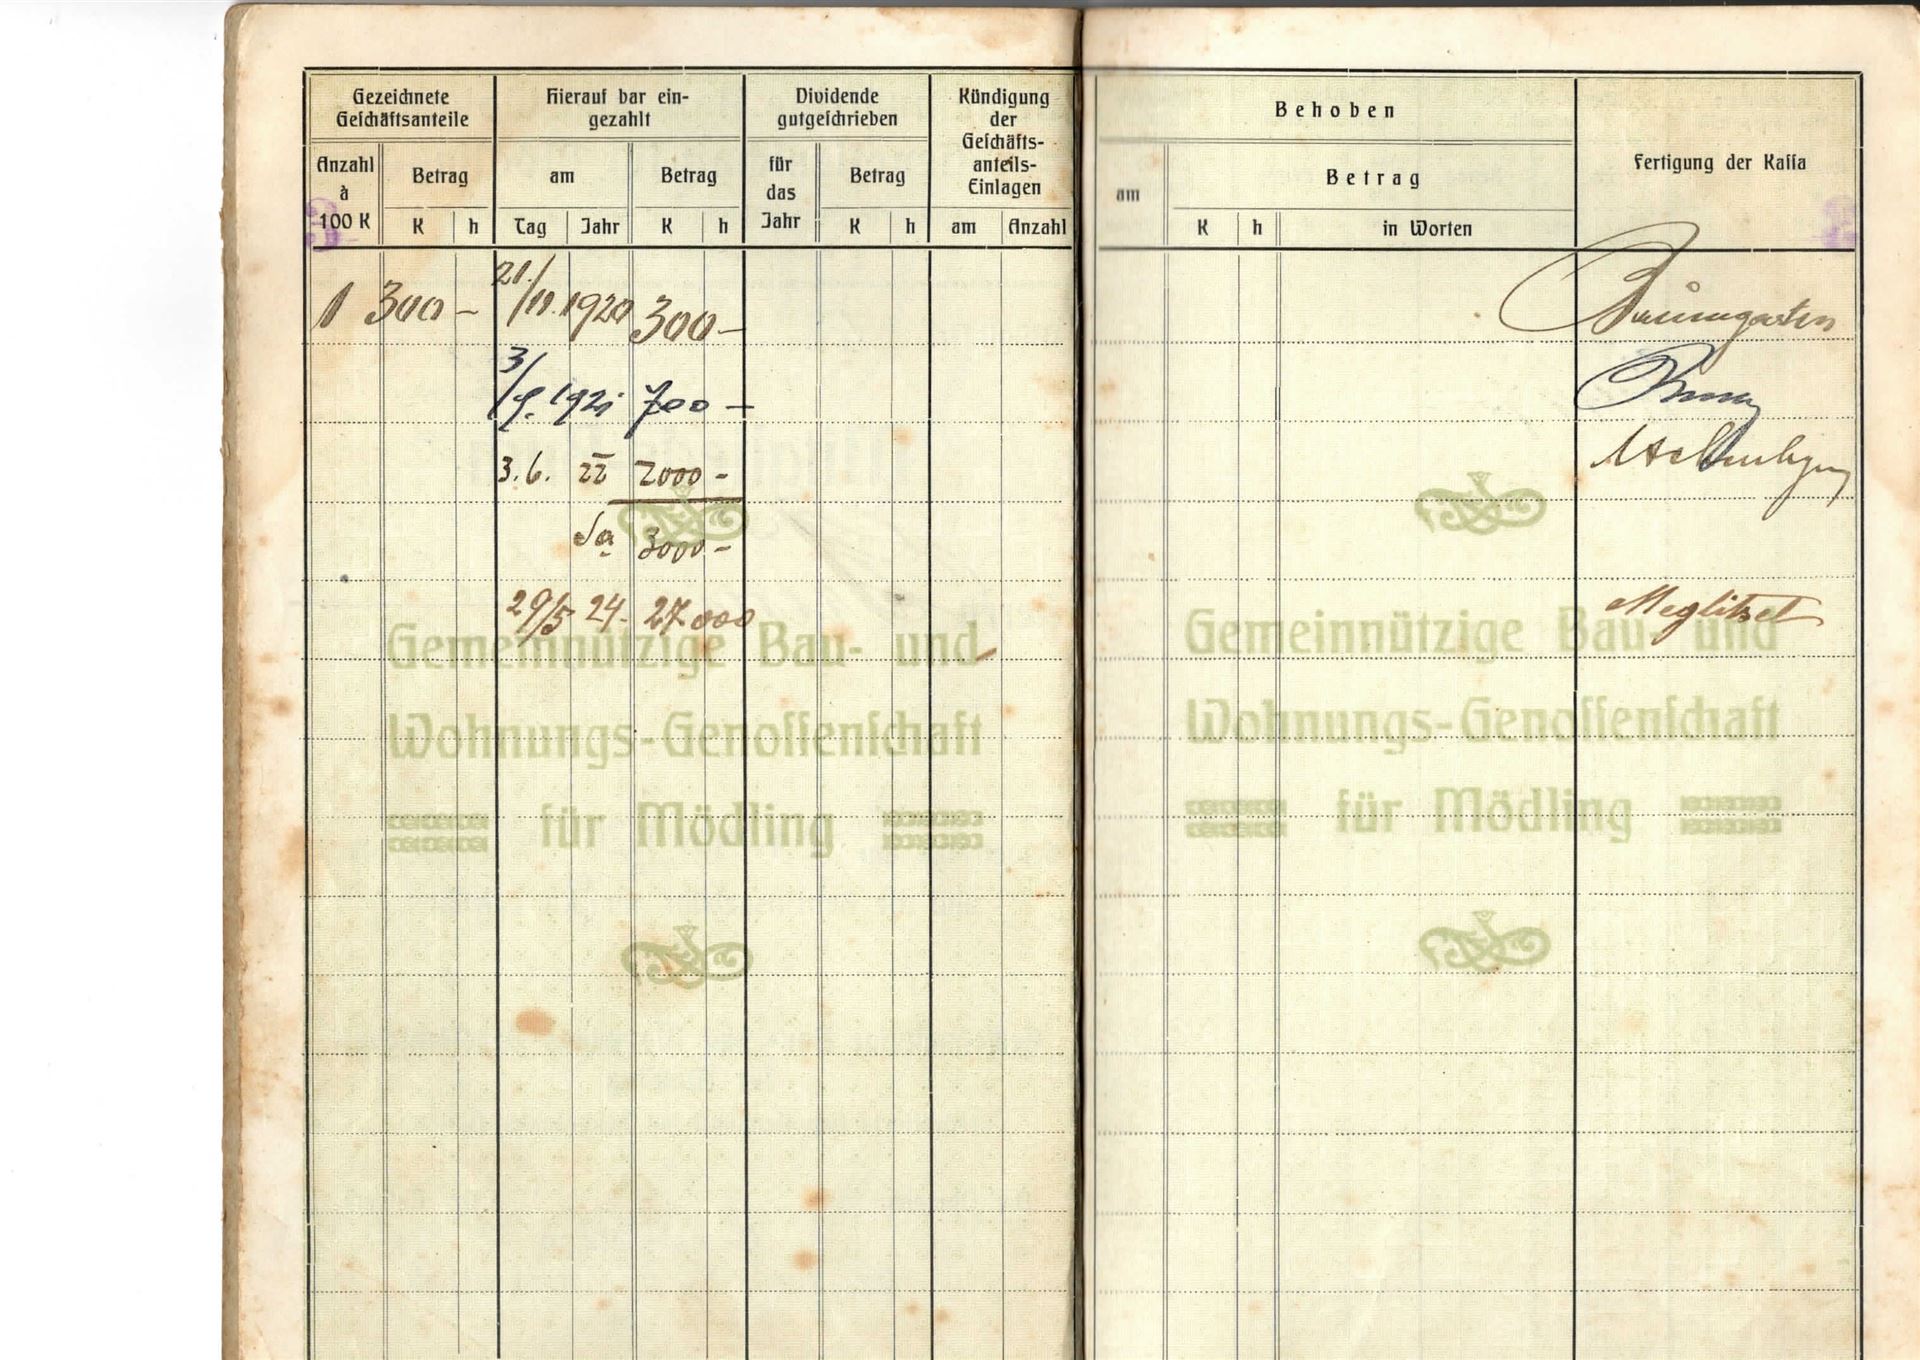 Gezeichnete Geschäftsanteile
Hierauf bar ein-
gezahlt
Dividende
gutgeschrieben
Kündigung
der
Geschäfts-
anteils-
Einlagen
Anzahl
à
100 K
Betrag
am
Betrag
für
das
Jahr
Betrag
K h Tag Jahr K h K h am Anzahl
Behoben
Fertigung der Kassa
am
Betrag
K h in Worten
1 300 – 21./11. 1920 300 – Baumgarten
3/9. 1921 700 –
3.6. 22 2000 –
Sa 3000 –
29/5 24. 27.000
Gemeinnützige Bau- und
Wohnungs-Genossenschaft
für Mödling
Gemeinnützige Bau- und
Wohnungs-Genossenschaft
für Mödling